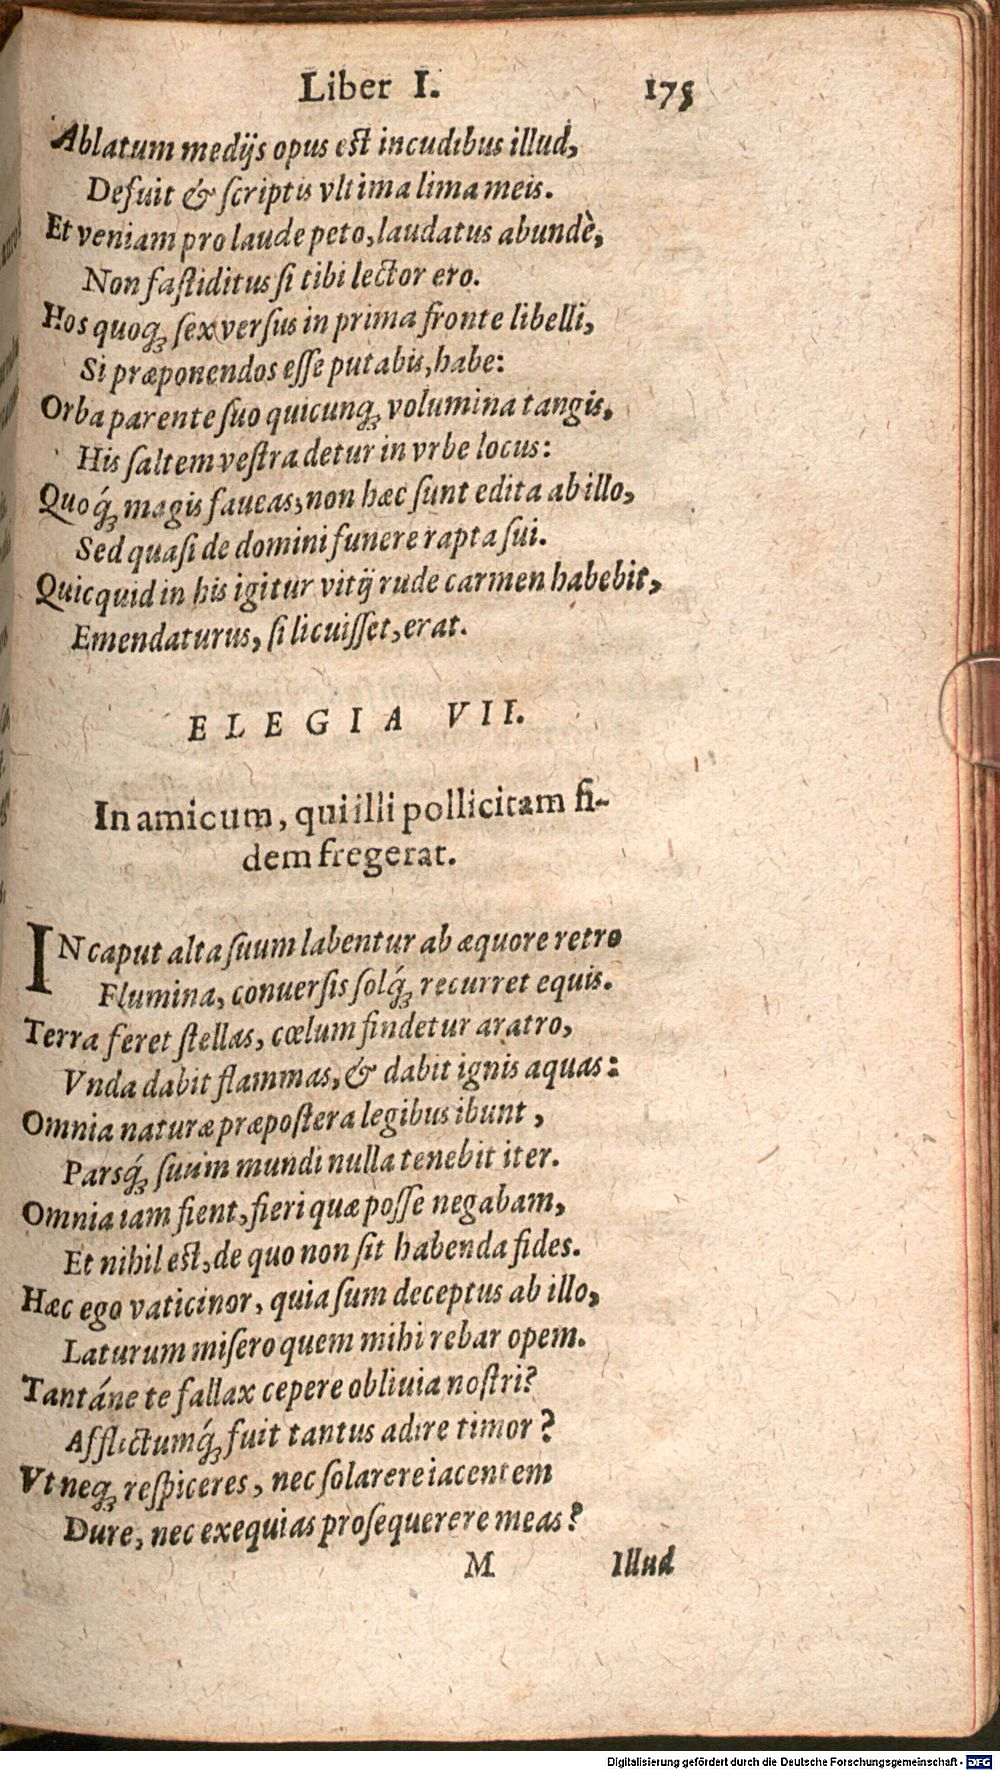 Liber I. 175
Ablatum medijs opus est incudibus illud,
Defuit & ſcriptis vltima lima meis.
Et veniam pro laude peto, laudatus abundè,
Non faſtiditus ſi tibi lector ero.
Hos quoqꝫ ſex verſus in prima fronte libelli,
Si præponendos eſſe putabis, habe:
Orba parente ſuo quicunqꝫ volumina tangis,
His ſaltem veſtra detur in vrbe locus:
Quoq́ꝫ magis faueas, non hæc ſunt edita ab illo,
Sed quaſi de domini funere rapta ſui.
Quicquid in his igitur vitij rude carmen habebit,
Emendaturus, ſi licuiſſet, erat.
ELEGIA VII.
In amicum, qui illi pollicitam fi-
dem fregerat.
IN caput alta ſuum labentur ab æquore retro
Flumina, conuerſis ſolq́ꝫ recurret equis.
Terra feret ſtellas, cœlum findetur aratro,
Vnda dabit flammas, & dabit ignis aquas:
Omnia naturæ præpoſtera legibus ibunt,
Parsq́ꝫ ſuum mundi nulla tenebit iter.
Omnia iam fient, fieri quæ poſſe negabam,
Et nihil est, de quo non ſit habenda fides.
Hæc ego vaticinor, quia ſum deceptus ab illo,
Laturum miſero quem mihi rebar opem.
Tantáne te fallax cepere obliuia noſtri?
Afflictumq́ꝫ fuit tantus adire timor?
Vt neqꝫ reſpiceres, nec ſolarere iacentem
Dure, nec exequias proſequerere meas?
M Illud
Digitalisierung gefördert durch die Deutsche Forschungsgemeinschaft - DFG